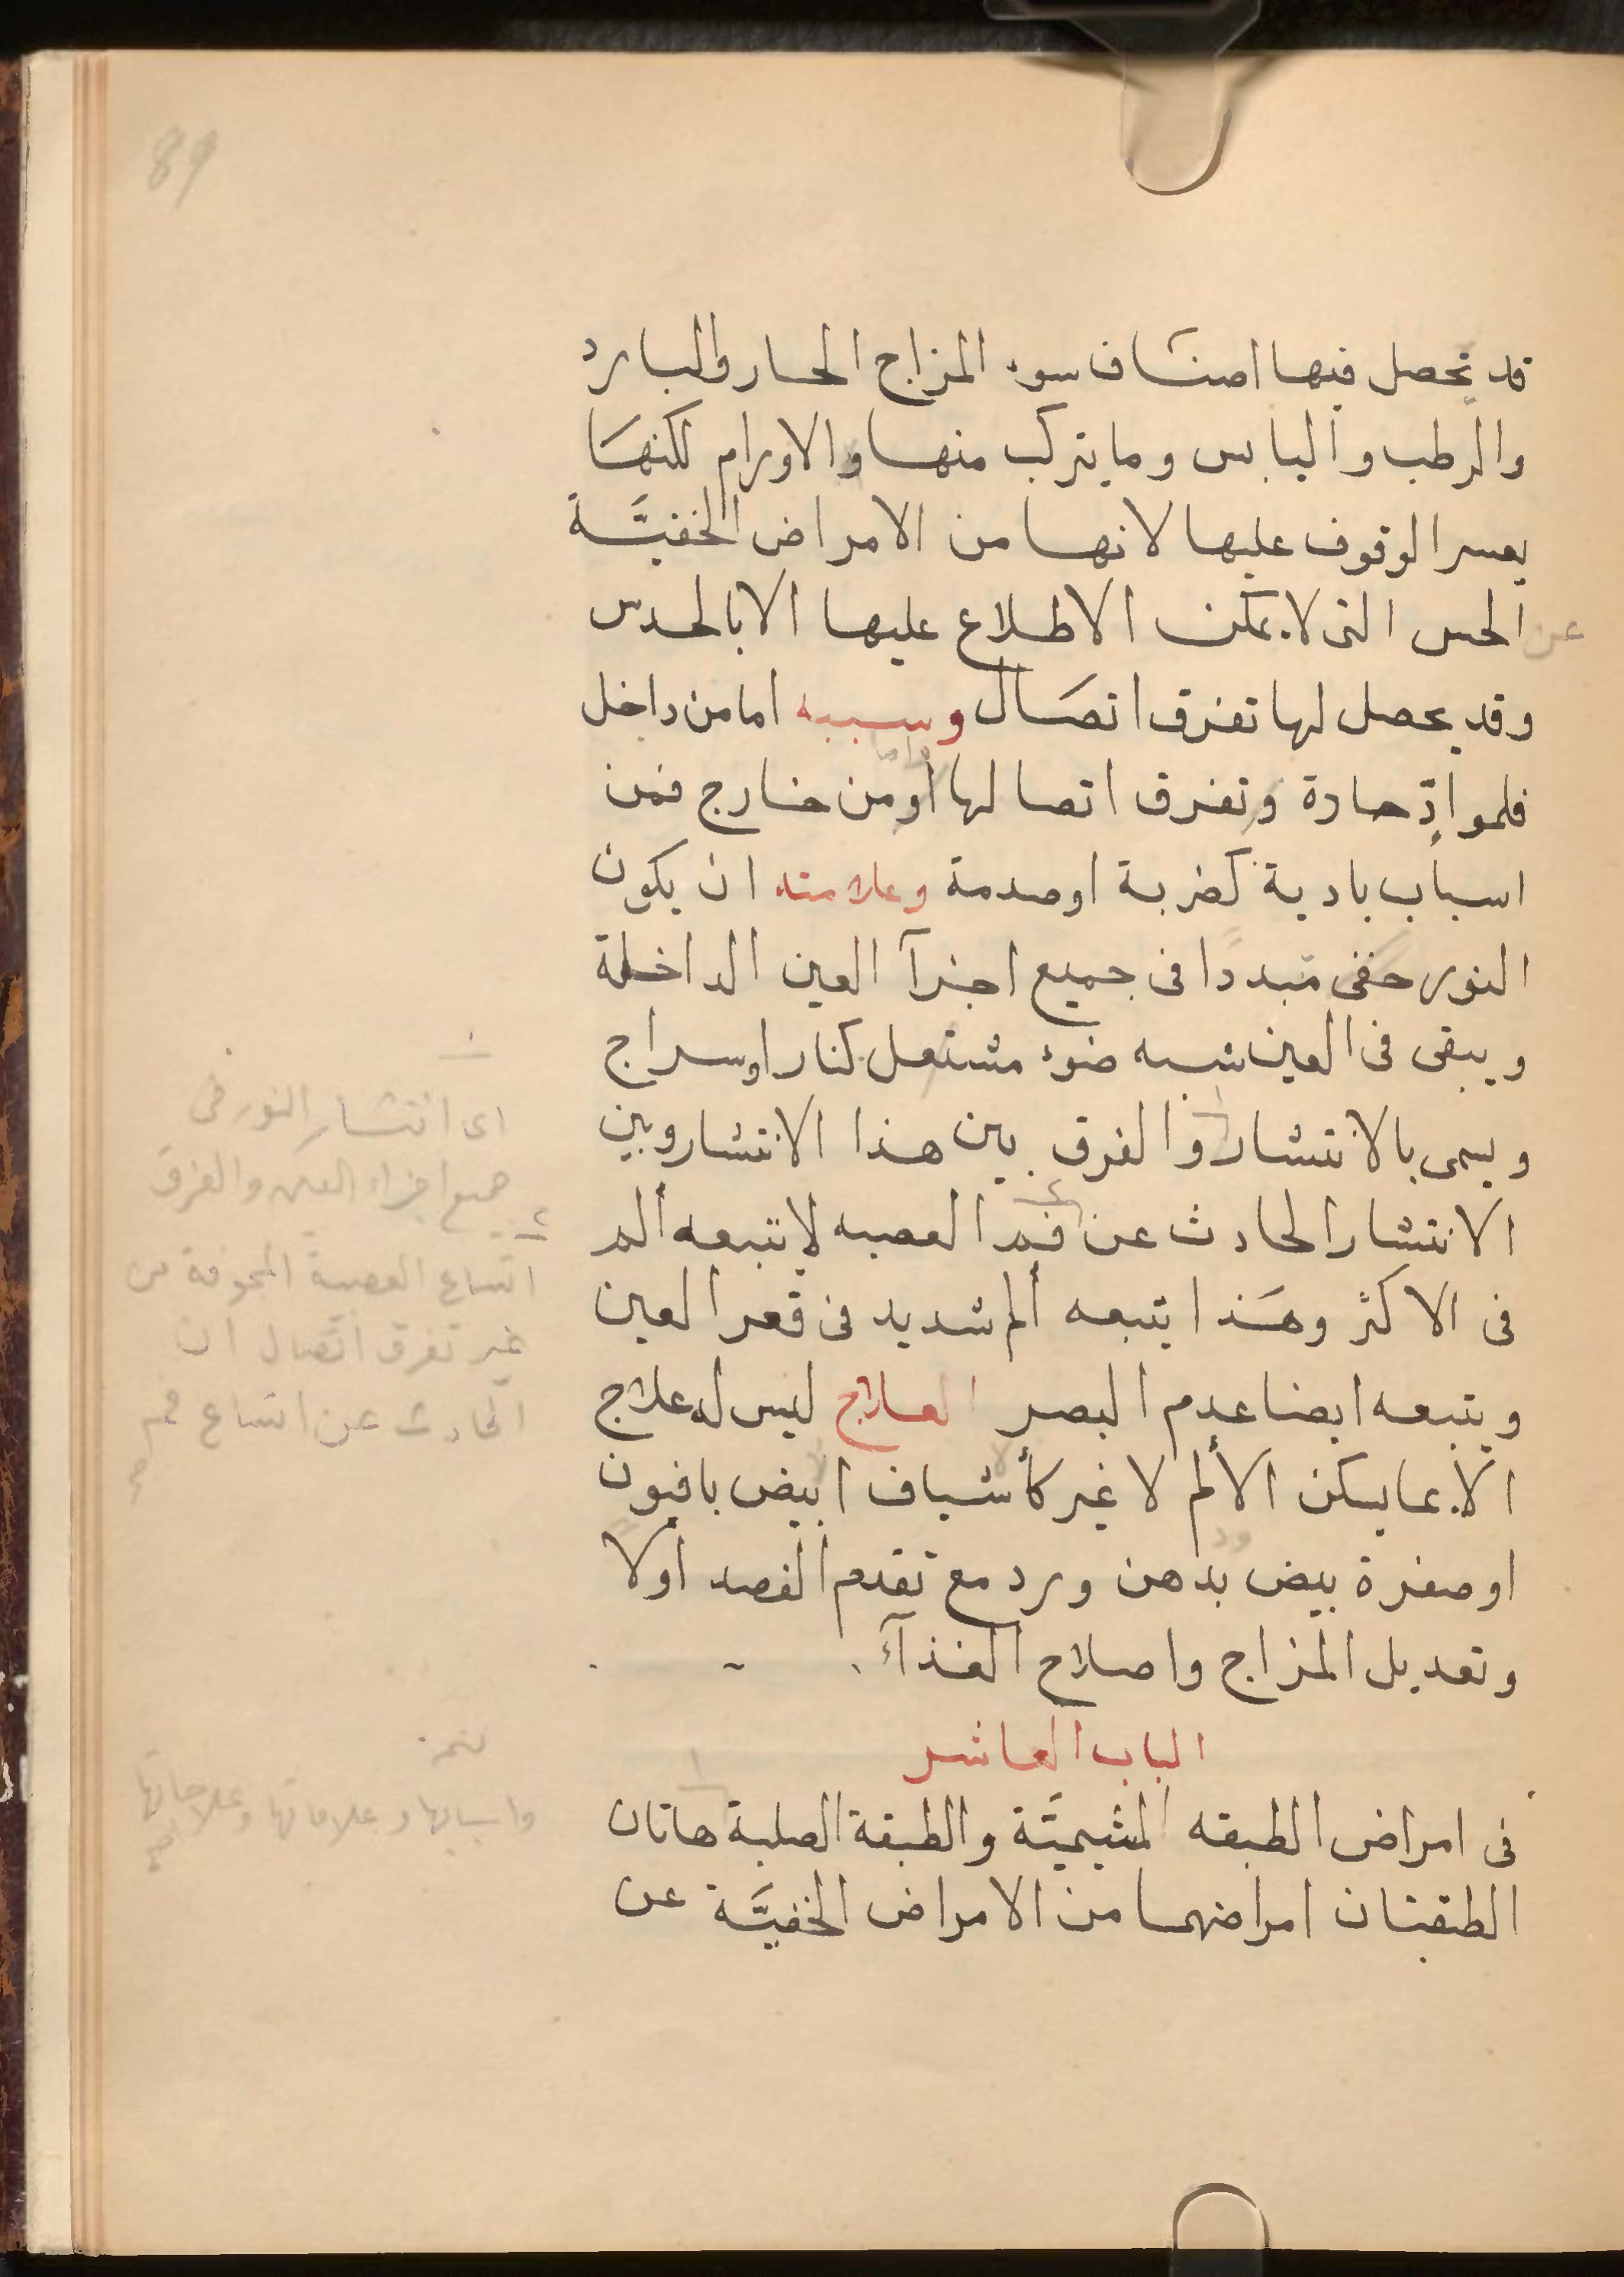 89
قد تحصل فيها اصناف سوء المزاج الحار والبارد
والرطب واليابس وما يتركب منها والاورام لكنها
يعسر الوقوف عليها لانها من الامراض الخفيَّة
عن الحس التى لا يمكن الاطلاع عليها الا بالحدس
وقد يحصل لها تفرق اتصَال وسببه اما من داخل
واما
فلموادّ حادة وتفرق اتصالها اومن خارج فمن
اسباب بادية كضربة اوصدمة وعلامته ان يكون
النور خفى متبددا فى جميع اجزآ العين الداخلة
ويبقى فى العين شبه ضوء مشتعل كنار اوسراج
ويسمى بالانتشار والفرق بين هذا الانتشار وبين
الانتشار الحادث عن فم العصبه لا يتبعه ألم
فى الاكثر وهَذا يتبعه ألم شديد فى قعر العين
ويتبعه ايضا عدم البصر العلاج ليس له علاج
الا بما يسكن الألم لا غير كأشياف ابيض بافيون
اوصفرة بيض بدهن ورد مع تقدم الفصد اولا
وتعديل المزاج واصلاح الغذآء
الباب العاشر
فى امراض الطبقه المشيميَّة والطبقة الصلبة هاتان
الطبقتان امراضهما من الامراض الخفيَّة عن
اى انتشار النور فى
جميع اجزاء العين والفرق
٢
اتساع العصبة المجوفة من
غير تفرق اتّصال ان
الحادث عن اتساع فم
واسبابها وعلاماتها وعلاجاتها